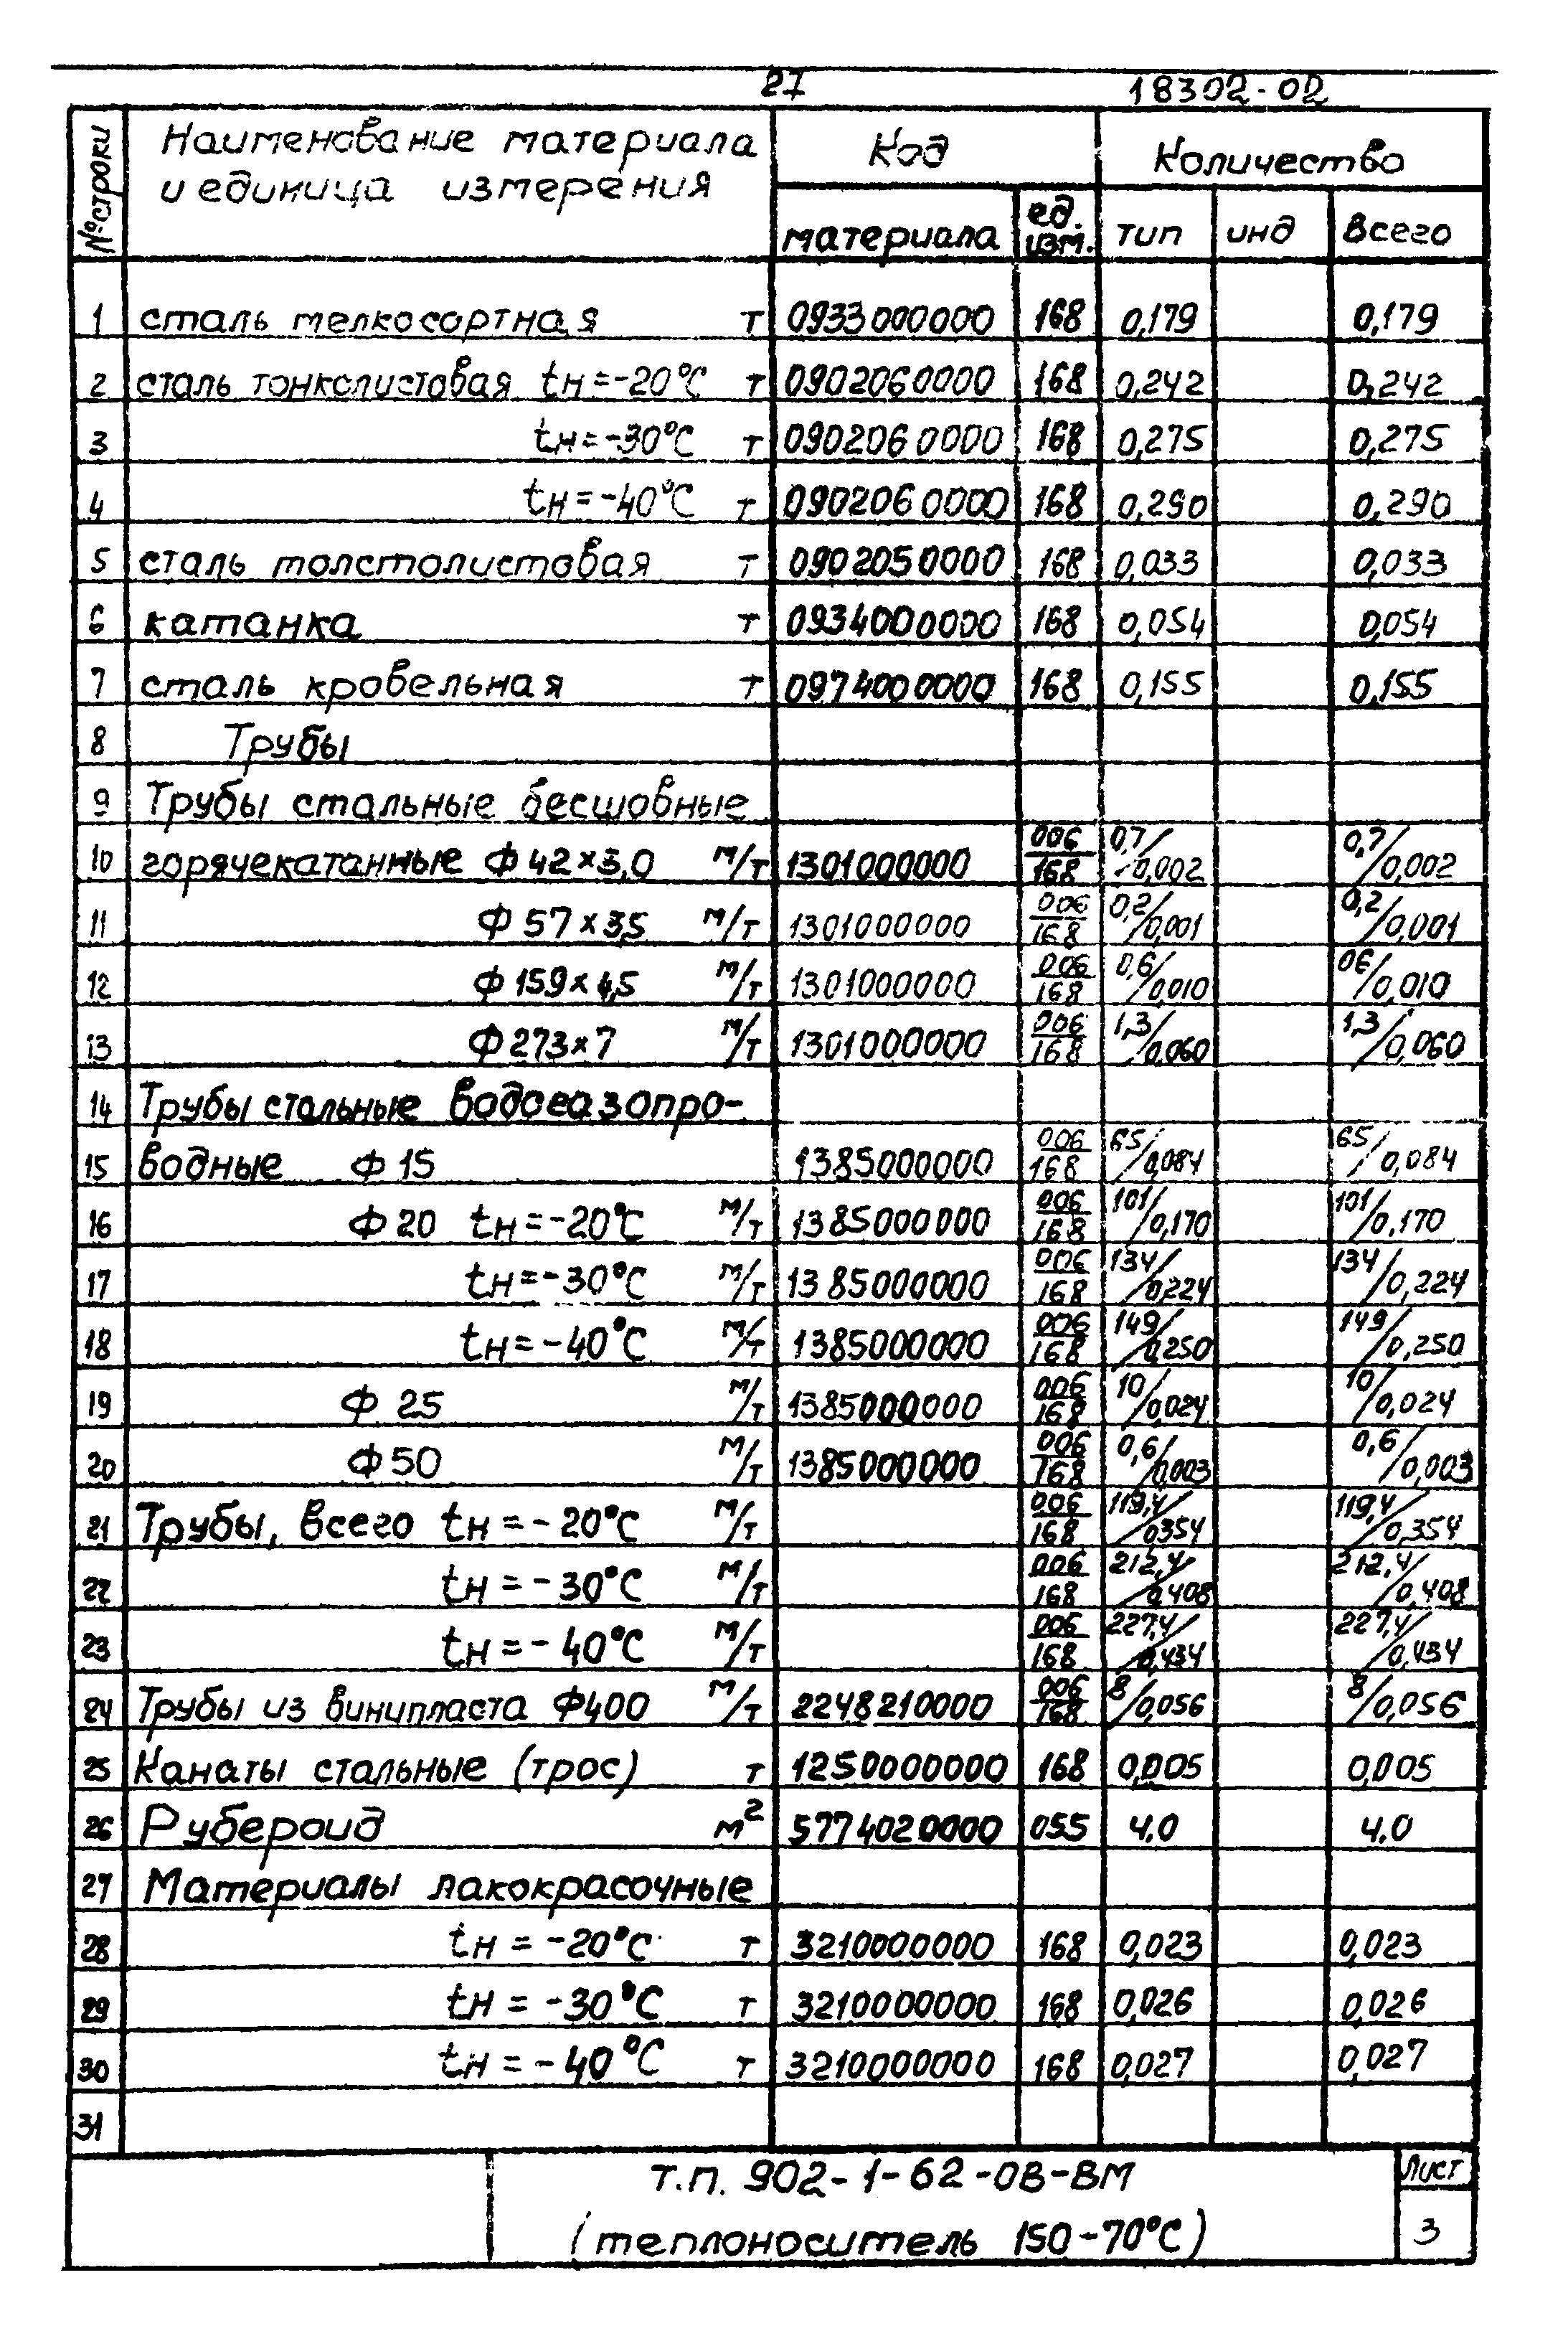 27
18302-02
№ строки
Наименование материала
и единица измерения
Код
Количество
материала
ед. изм.
тип
инд
всего
1 сталь мелкосортная т 0933000000 168 0,179 0,179
2 сталь тонколистовая tн=-20°С т 0902060000 168 0,242 0,242
3 tн=-30°С т 0902060000 168 0,275 0,275
4 tн=-40°С т 0902060000 168 0,290 0,290
5 сталь толстолистовая т 0902050000 168 0,033 0,033
6 катанка т 0934000000 168 0,054 0,054
7 сталь кровельная т 0974000000 168 0,155 0,155
8 Трубы
9 Трубы стальные бесшовные
10 горячекатанные Ф 42×3,0 м/т 1301000000 006/168 0,7/0,002 0,7/0,002
11 Ф 57×3,5 м/т 1301000000 006/168 0,2/0,001 0,2/0,001
12 Ф 159×4,5 м/т 1301000000 006/168 0,6/0,010 06/0,010
13 Ф 273×7 м/т 1301000000 006/168 1,3/0,060 1,3/0,060
14 Трубы стальные водогазопро-
15 водные Ф 15 1385000000 006/168 65/0,084 65/0,084
16 Ф 20 tн=-20°С м/т 1385000000 006/168 101/0,170 101/0,170
17 tн=-30°С м/т 1385000000 006/168 134/0,224 134/0,224
18 tн=-40°С м/т 1385000000 006/168 149/0,250 149/0,250
19 Ф 25 м/т 1385000000 006/168 10/0,024 10/0,024
20 Ф 50 м/т 1385000000 006/168 0,6/0,003 0,6/0,003
21 Трубы, всего tн=-20°С м/т 006/168 119,4/0354 119,4/0,354
22 tн=-30°С м/т 006/168 212,4/0,408 212,4/0,408
23 tн=-40°С м/т 006/168 227,4/0,434 227,4/0,434
24 Трубы из винипласта Ф400 м/т 2248210000 006/168 8/0,056 8/0,056
25 Канаты стальные (трос) т 1250000000 168 0,005 0,005
26 Рубероид м² 5774020000 055 4.0 4.0
27 Материалы лакокрасочные
28 tн=-20°С т 3210000000 168 0,023 0,023
29 tн=-30°С т 3210000000 168 0,026 0,026
30 tн=-40°С т 3210000000 168 0,027 0,027
31
т.п. 902-1-62-ОВ-ВМ
(теплоноситель 150-70°С)
Лист
3